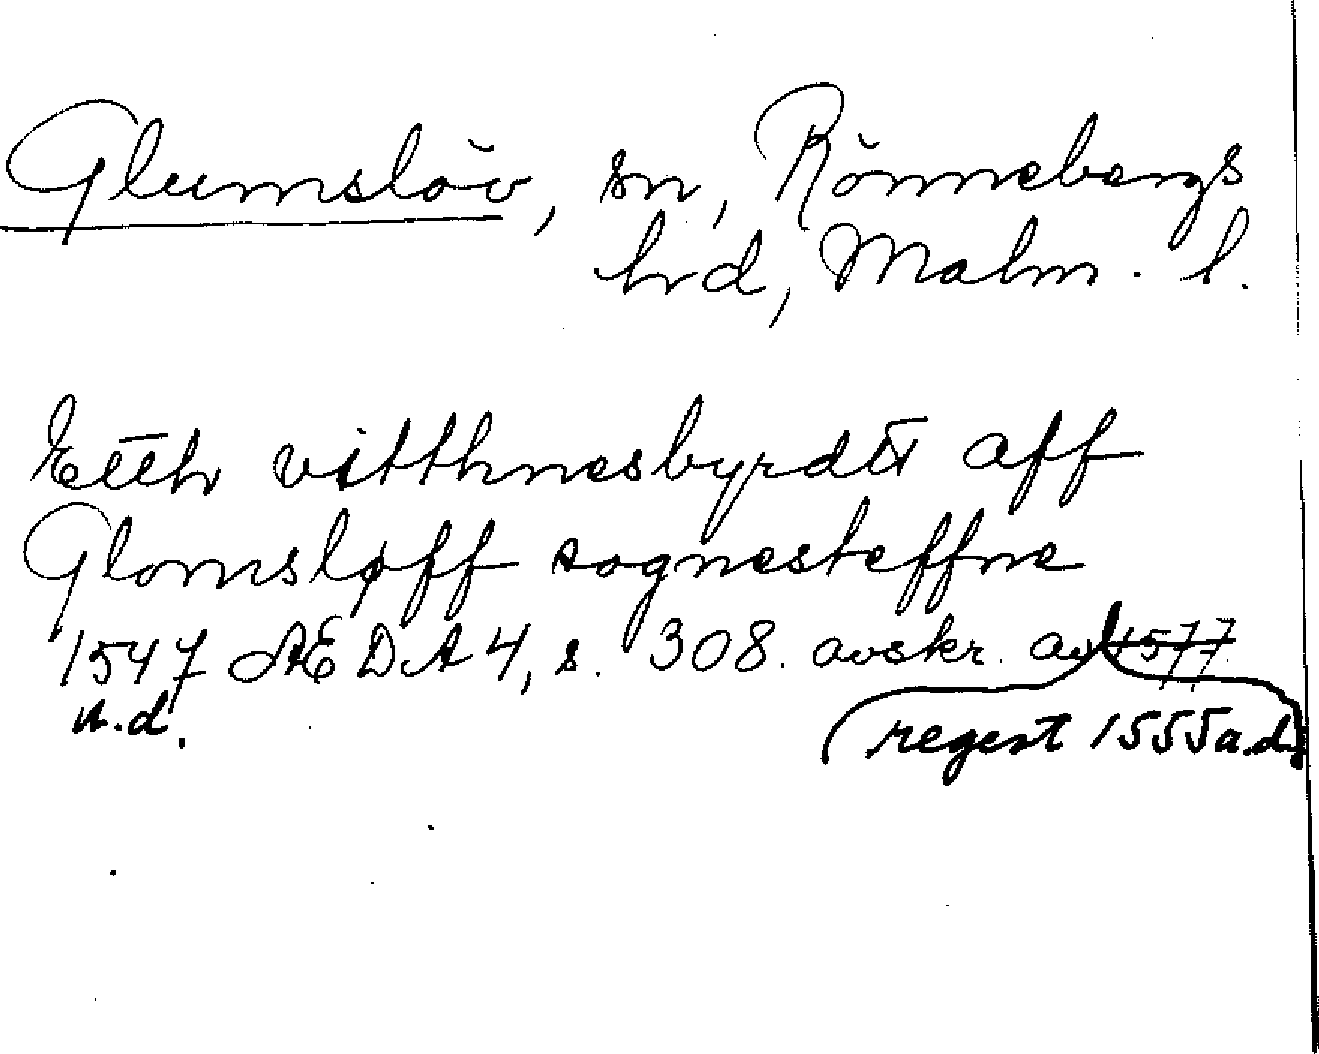 Glumslöv, sn, Rönnebergs
hd, Malm. l.
Etth vitthnesbyrdtt aff
Glomsløff sognesteffne
1547 ÆDA 4, s. 308. avskr. av 1577
u.d. regest 1555 a.d.